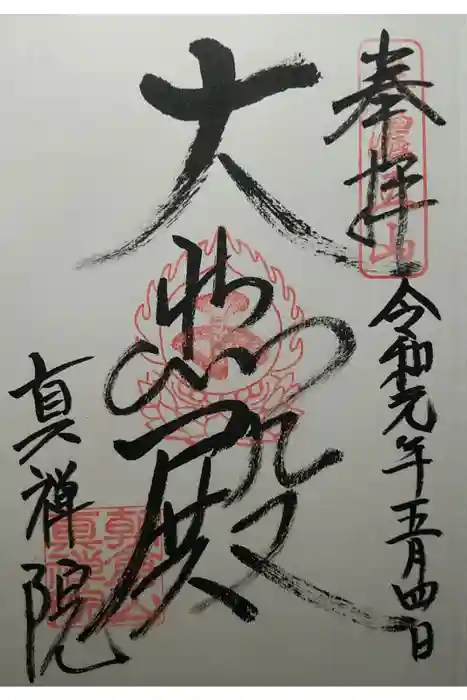 奉拝
令和元年五月四日
大悲殿
真禅院